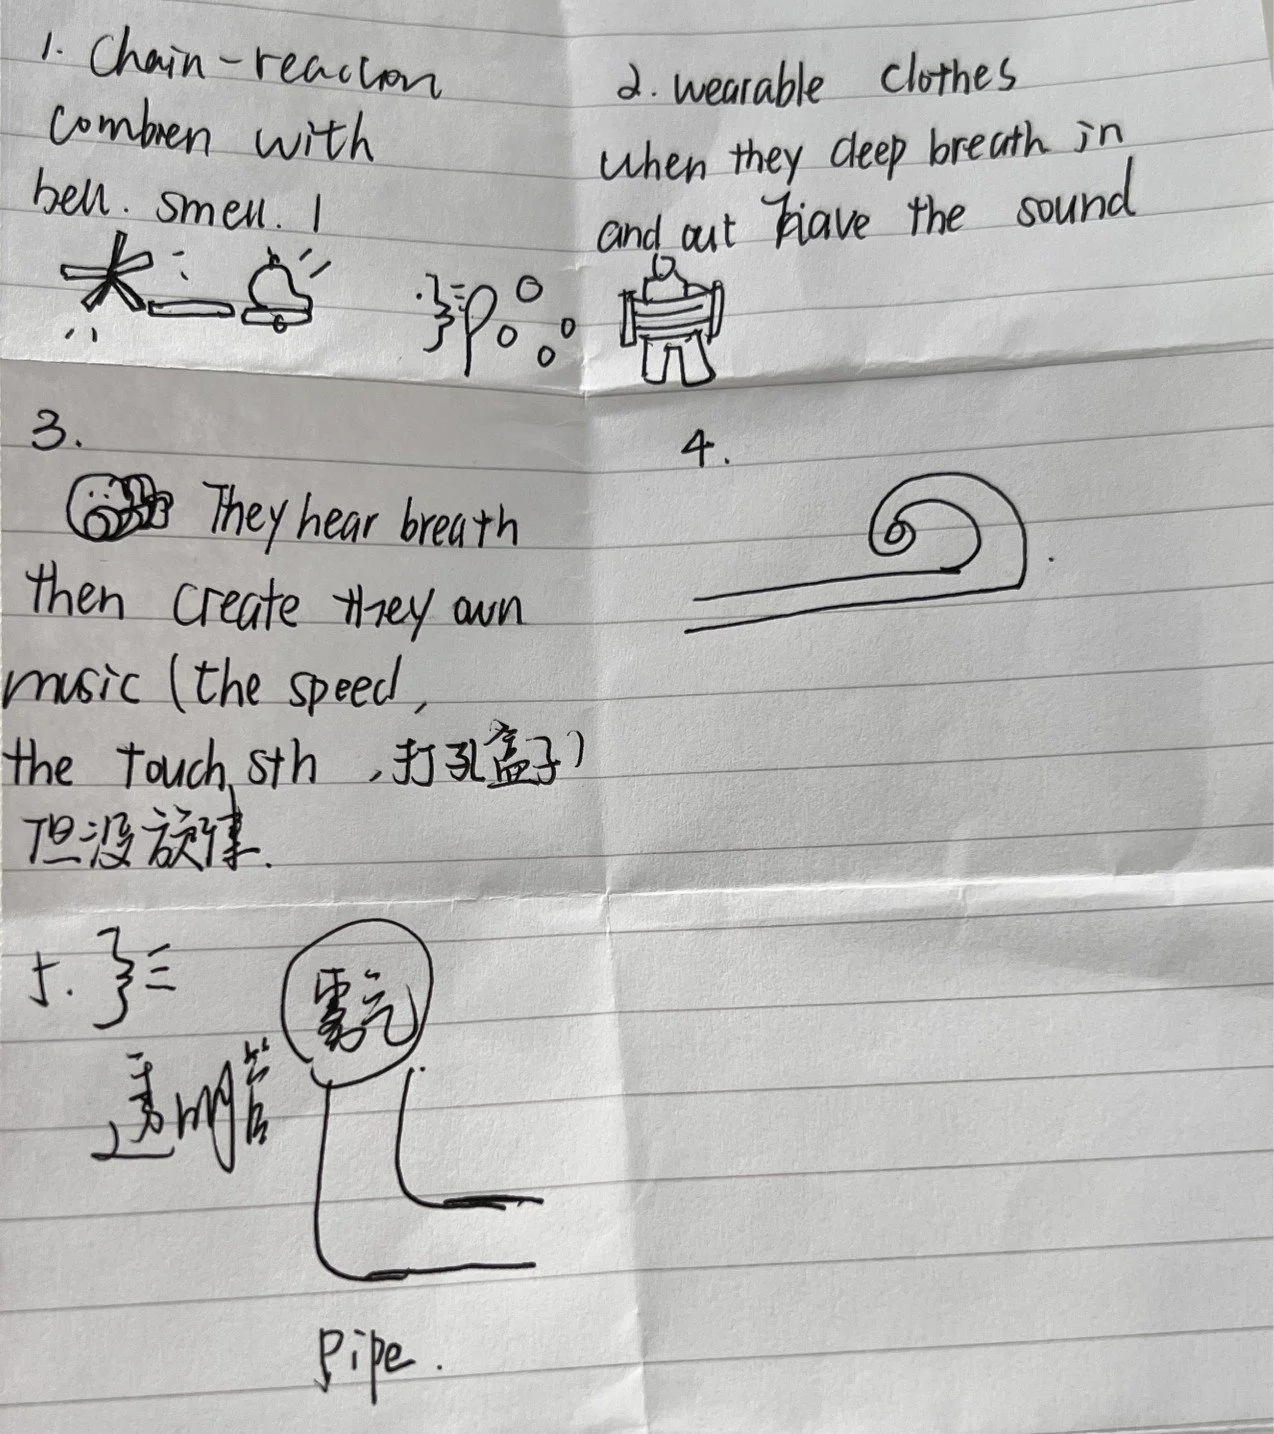 1. Chain-reaction
combien with
bell. smell. 1
2. wearable clothes
when they deep breath in
and out have the sound
3.
They hear breath
then create they own
music (the speed,
the touch sth ,打孔盒子)
但没旋律.
4.
5.
透明管
雾气
pipe.